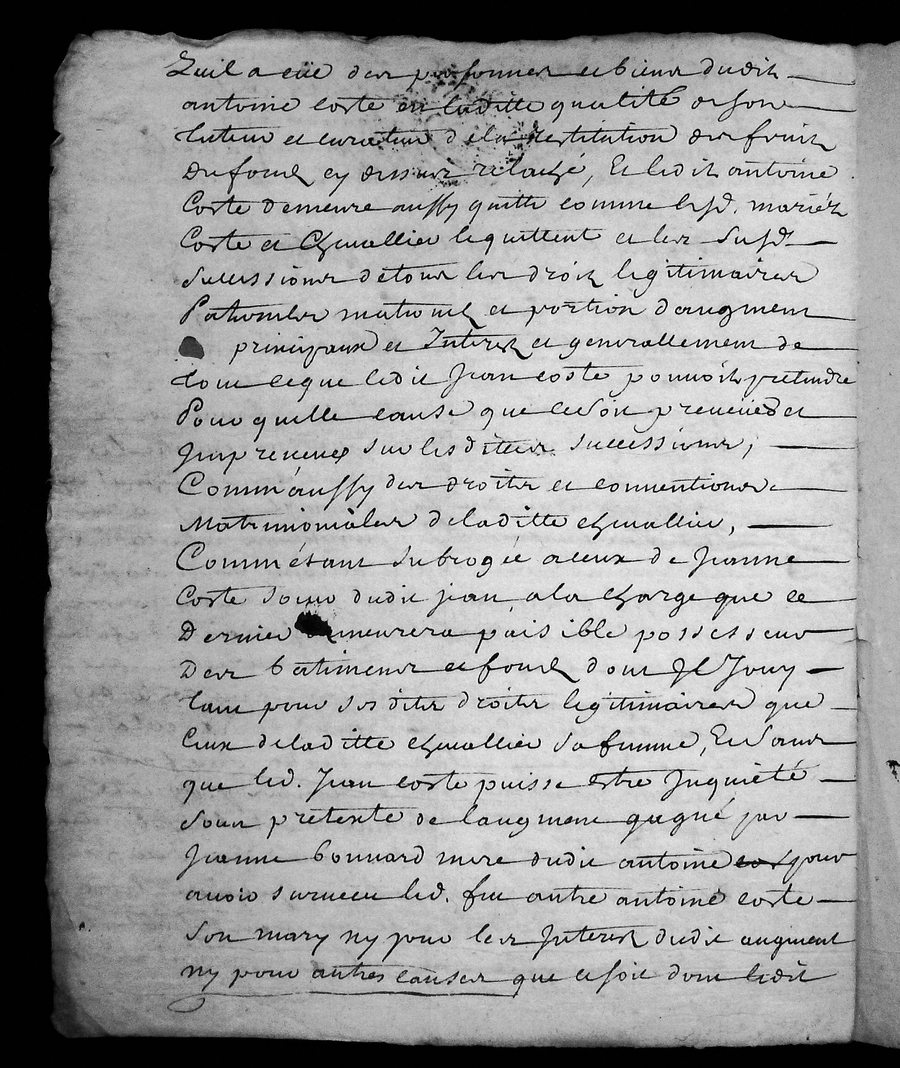 quil a eüe des personnes et biens dudit
antoine coste en laditte qualité de son
tuteur et curateur de la restitution des fruits
des fonds cy dessus relaché, Et ledit antoine
Coste demeure aussy quitte comme lesd. mariéz
Coste et Chevallier le quittent et les susd.
successions de tous les droits legitimaires
Paternels maternels et portion daugment
principaux et Interets et generallement de
tout ceque ledit Jean coste pouvoit pretendre
Pour quelle cause que ce soit preveües et
Impreveues sur lesdittes successions,
Comm'aussy des droits et conventions
Matrimoniales de laditte chevallier,
Comm'étant subrogée a ceux de Jeanne
Coste soeur dudit jean, a la charge que ce
Dernier demeurera paisible possesseur
Des batimens et fonds dont Il Jouy
tant pour ses dits droits legitimaires que
Ceux de laditte chevallier sa femme, Et sans
que led. Jean coste puisse estre Inquiété
sous pretexte de laugment gagné par
Jeanne bonnard mere dudit antoine pour
avoir survecu led. feu autre antoine coste
son mary ny pour les Interets dudit augment
ny pour autres causes que ce soit dont ledit